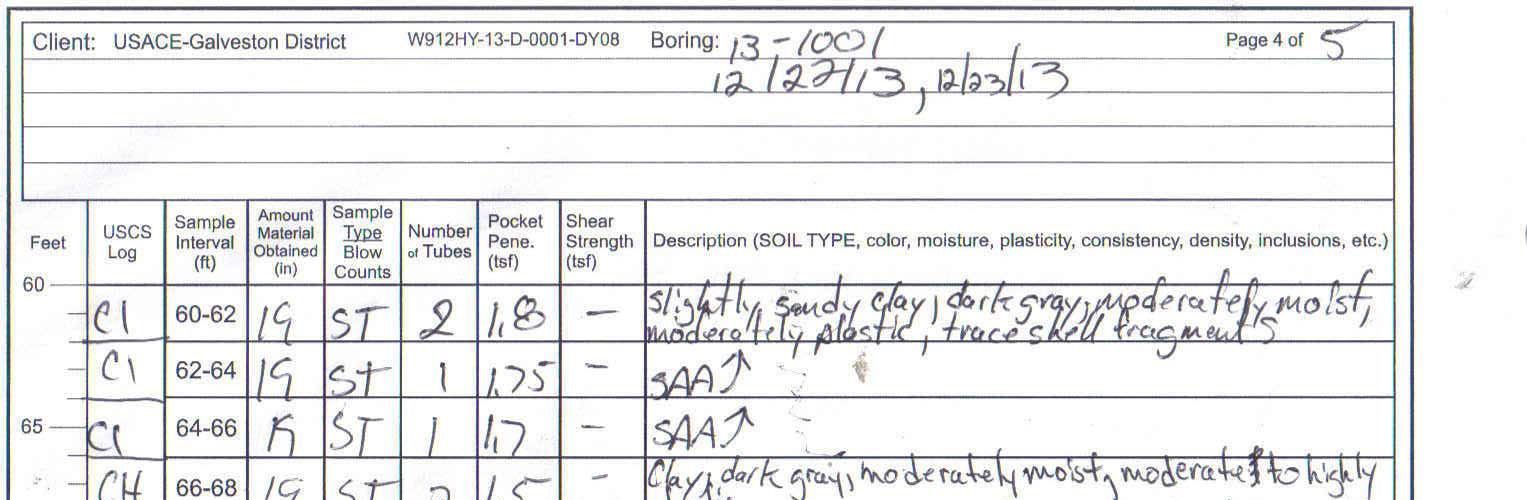 Client: USACE-Galveston District W912HY-13-D-0001-DY08 Boring: 13-1001 Page 4 of 5
12/22/13, 12/23/13
Feet USCS Log Sample Interval (ft) Amount Material Obtained (in) Sample Type Blow Counts Number of Tubes Pocket Pene. (tsf) Shear Strength (tsf) Description (SOIL TYPE, color, moisture, plasticity, consistency, density, inclusions, etc.)
60
Cl 60-62 19 ST 2 1.8 — slightly sandy clay, dark gray, moderately moist,
moderately plastic, trace shell fragments
Cl 62-64 19 ST 1 1.75 — SAA↑
65 Cl 64-66 ST 1 1.7 — SAA↑
CH 66-68 19 ST 2 1.5 — Clay, dark gray, moderately moist, moderate to highly